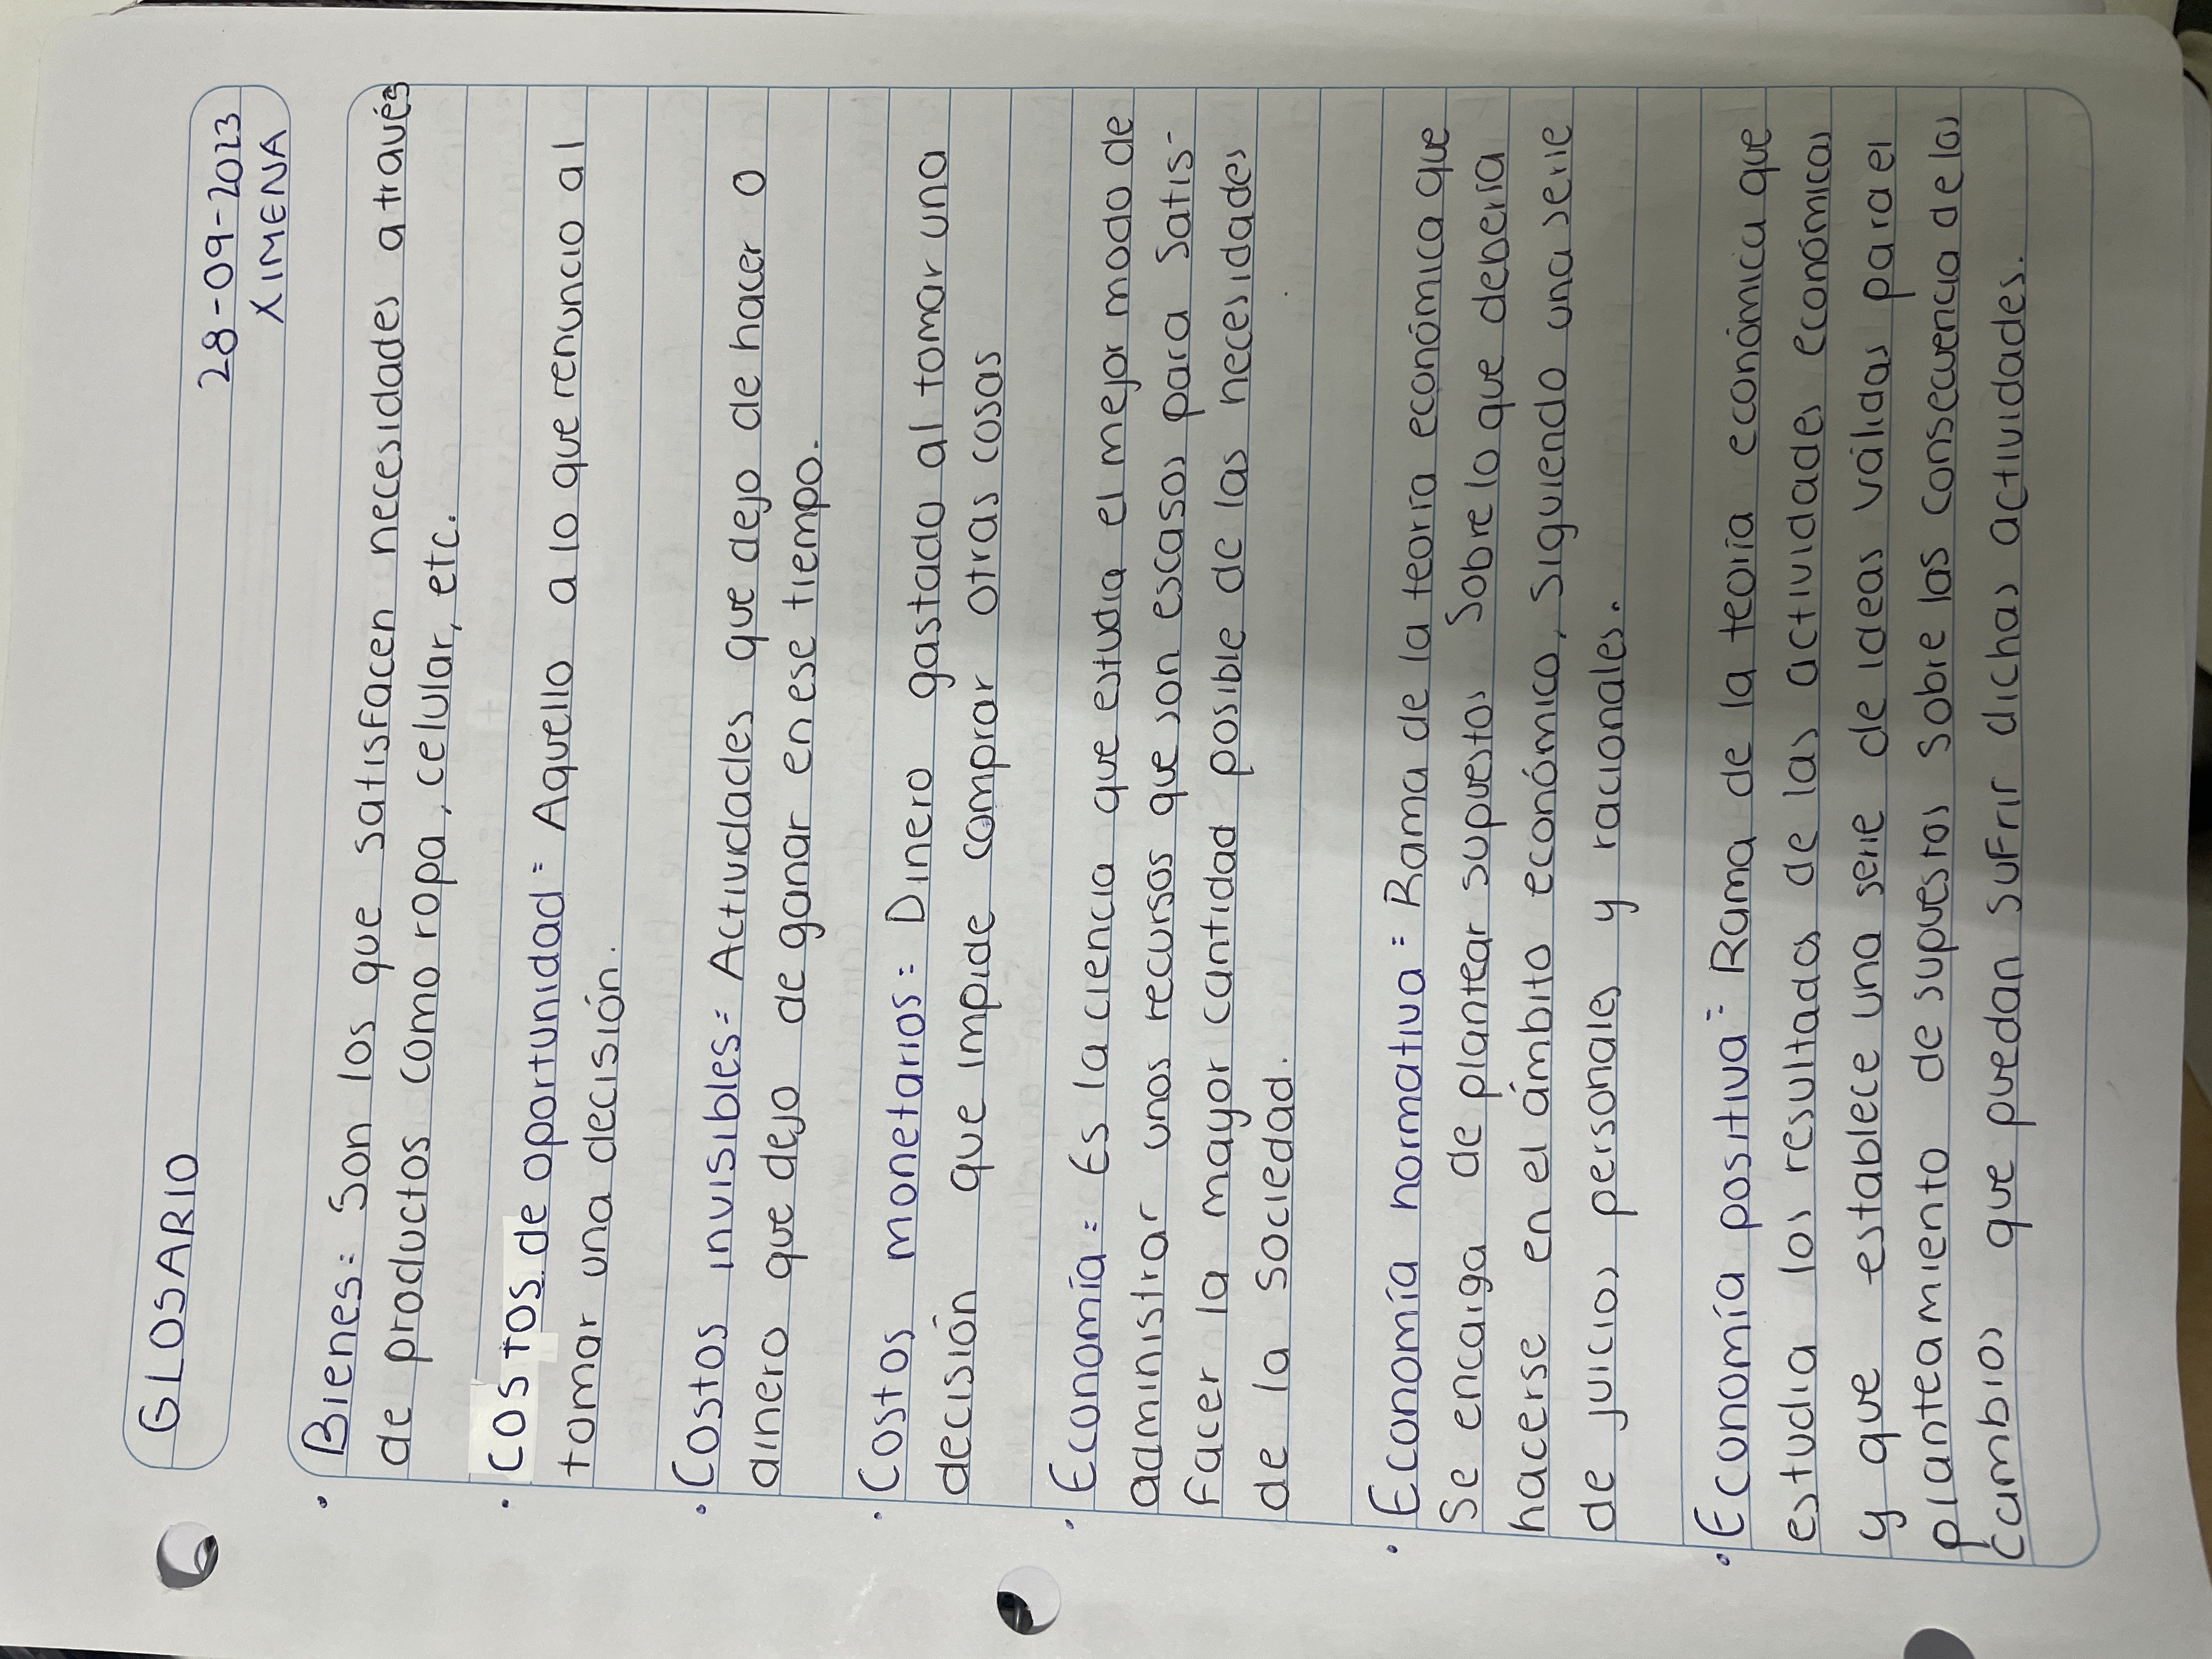 GLOSARIO
28-09-2023
XIMENA
• Bienes= Son los que satisfacen necesidades a través
de productos como ropa, celular, etc.
• COSTOS de oportunidad= Aquello a lo que renuncio al
tomar una decisión.
• Costos invisibles= Actividades que dejo de hacer o
dinero que dejo de ganar en ese tiempo.
• Costos monetarios= Dinero gastado al tomar una
decisión que impide comprar otras cosas
• Economía= Es la ciencia que estudia el mejor modo de
administrar unos recursos que son escasos para satis-
facer la mayor cantidad posible de las necesidades
de la sociedad.
• Economía normativa= Rama de la teoría económica que
se encarga de plantear supuestos sobre lo que debería
hacerse en el ámbito económico, siguiendo una serie
de juicios personales y racionales.
• Economía positiva= Rama de la teoría económica que
estudia los resultados de las actividades económicas
y que establece una serie de ideas válidas para el
planteamiento de supuestos sobre las consecuencia de los
cambios que puedan sufrir dichas actividades.